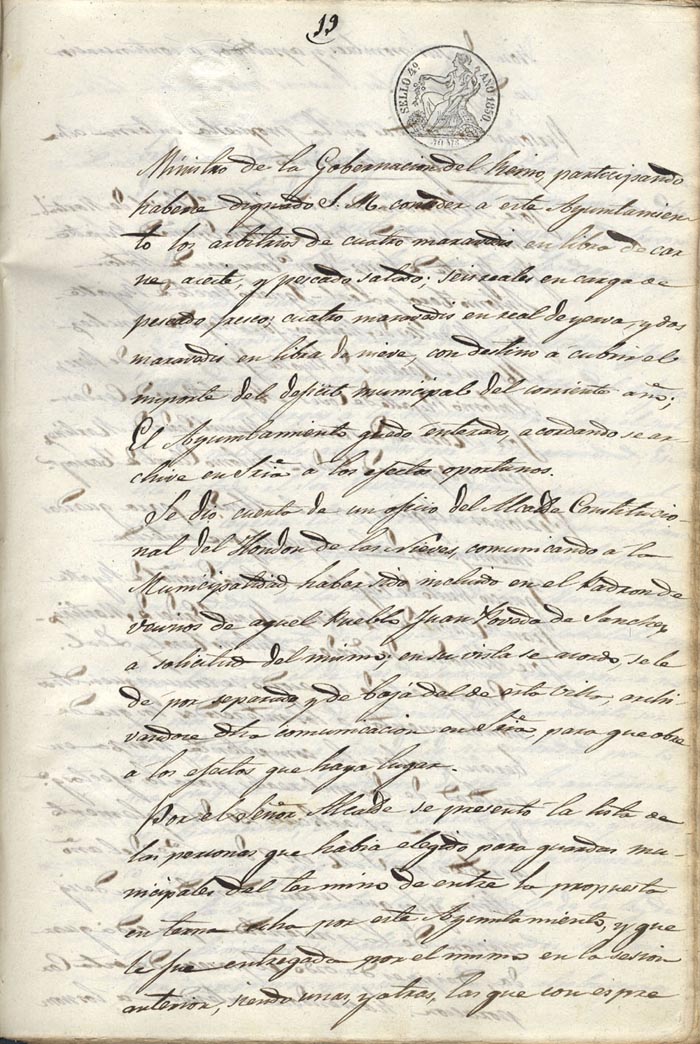 19
SELLO 4º AÑO 1850.
40 MS.
Ministro de la Gobernacion del Reino, participando
haberse dignado S. M. conceder a este Ayuntamien-
to los arbitrios de cuatro maravedis en libra de car-
ne, aceite, y pescado salado; seis reales en carga de
pescado fresco; cuatro maravedis en real de yerva, y dos
maravedis en libra de nieve, con destino a cubrir el
importe del deficit municipal del corriente año;
El Ayuntamiento quedó enterado, acordando se ar-
chive en Sriª a los efectos oportunos.
Se dió cuenta de un oficio del Alcalde Constitucio-
nal del Hondon de las Nieves, comunicando a la
Municipalidad haber sido incluido en el Padron de
vecinos de aquel Pueblo Juan Poveda de Sanchez
a solicitud del mismo; en su vista se acordó, se le
dé por separado y de baja del de esta villa, archi-
vandose dha comunicacion en Sriª para que obre
a los efectos que haya lugar.
Por el Señor Alcalde se presentó la lista de
las personas que habia elegido para guardas mu-
nicipales del termino de entre la propuesta
en terna hecha por este Ayuntamiento, y que
le fue entregada por el mismo en la sesion
anterior, siendo unas, y otras, las que con espre